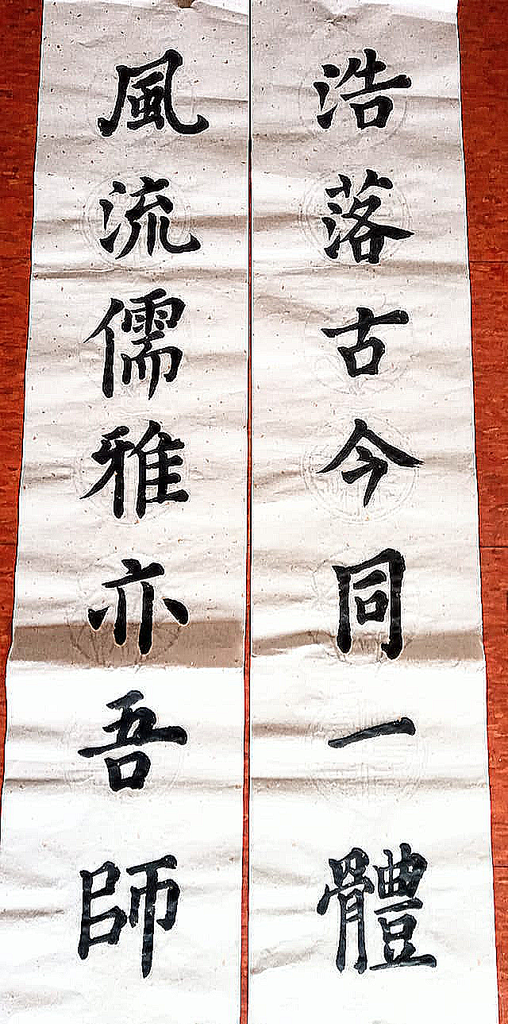 浩落古今同一體
風流儒雅亦吾師